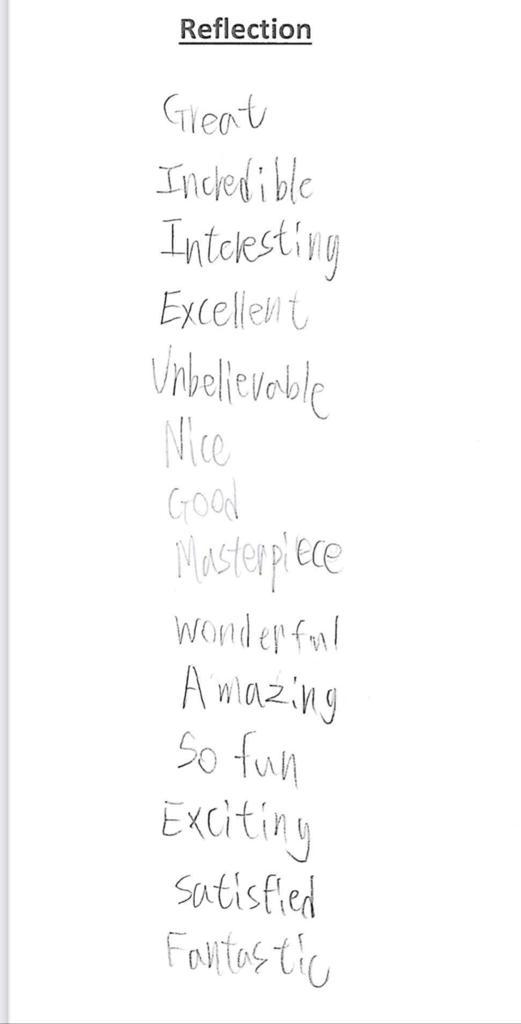 Reflection
Great
Incredible
Interesting
Excellent
Unbelievable
Nice
Good
Masterpiece
wonderful
Amazing
So fun
Exciting
satisfied
Fantastic